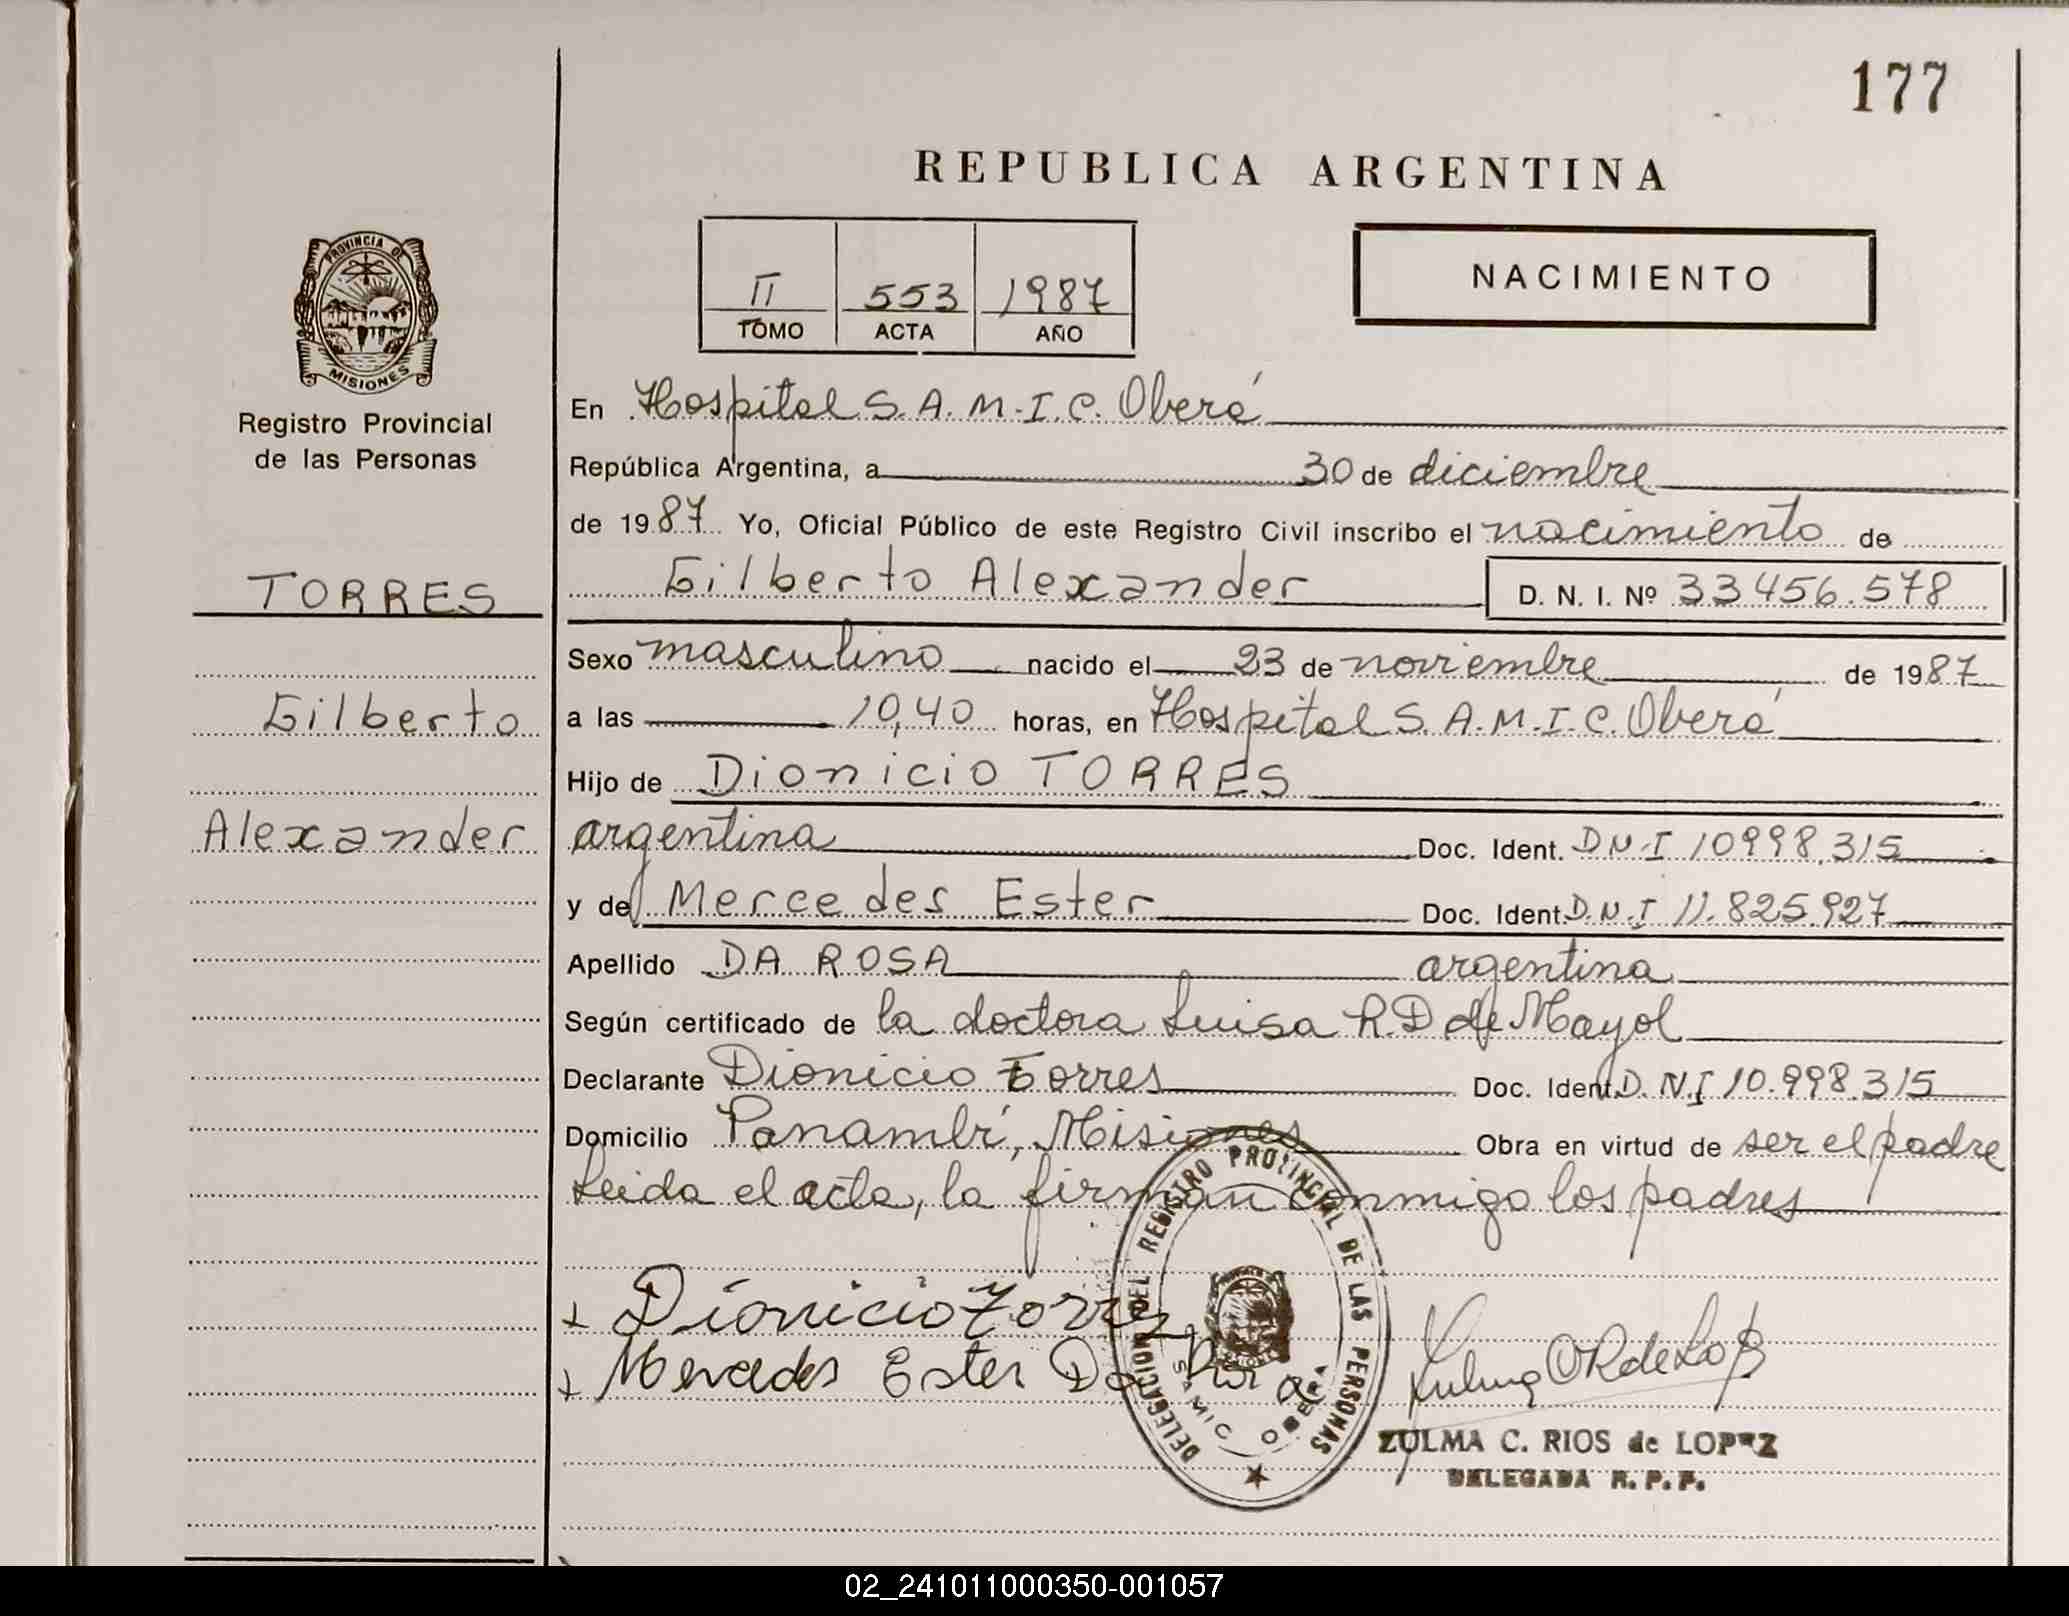 177
REPUBLICA ARGENTINA
II 553 1987
TOMO ACTA AÑO
NACIMIENTO
PROVINCIA DE
MISIONES
Registro Provincial
de las Personas
TORRES
Gilberto
Alexander
En Hospital S.A.M.I.C. Oberá
República Argentina, a 30 de diciembre
de 1987 Yo, Oficial Público de este Registro Civil inscribo el nacimiento de
Gilberto Alexander D. N. I. Nº 33456.578
Sexo masculino nacido el 23 de noviembre de 1987
a las 10,40 horas, en Hospital S.A.M.I.C. Oberá
Hijo de Dionicio TORRES
argentina Doc. Ident. D N.I 10998.315
y de Mercedes Ester Doc. Ident. D.N.I 11.825.927
Apellido DA ROSA argentina
Según certificado de la doctora Luisa R.D de Mayol
Declarante Dionicio Torres Doc. Ident. D.N.I 10.998.315
Domicilio Panambí, Misiones Obra en virtud de ser el padre
Leida el acta, la firman conmigo los padres
Dionicio Torrez
Mercedes Ester Da Rosa
DELEGACION DEL REGISTRO PROVINCIAL DE LAS PERSONAS
SAMIC OBERA
ZULMA C. RIOS de LOPEZ
DELEGADA R. P. P.
02_241011000350-001057